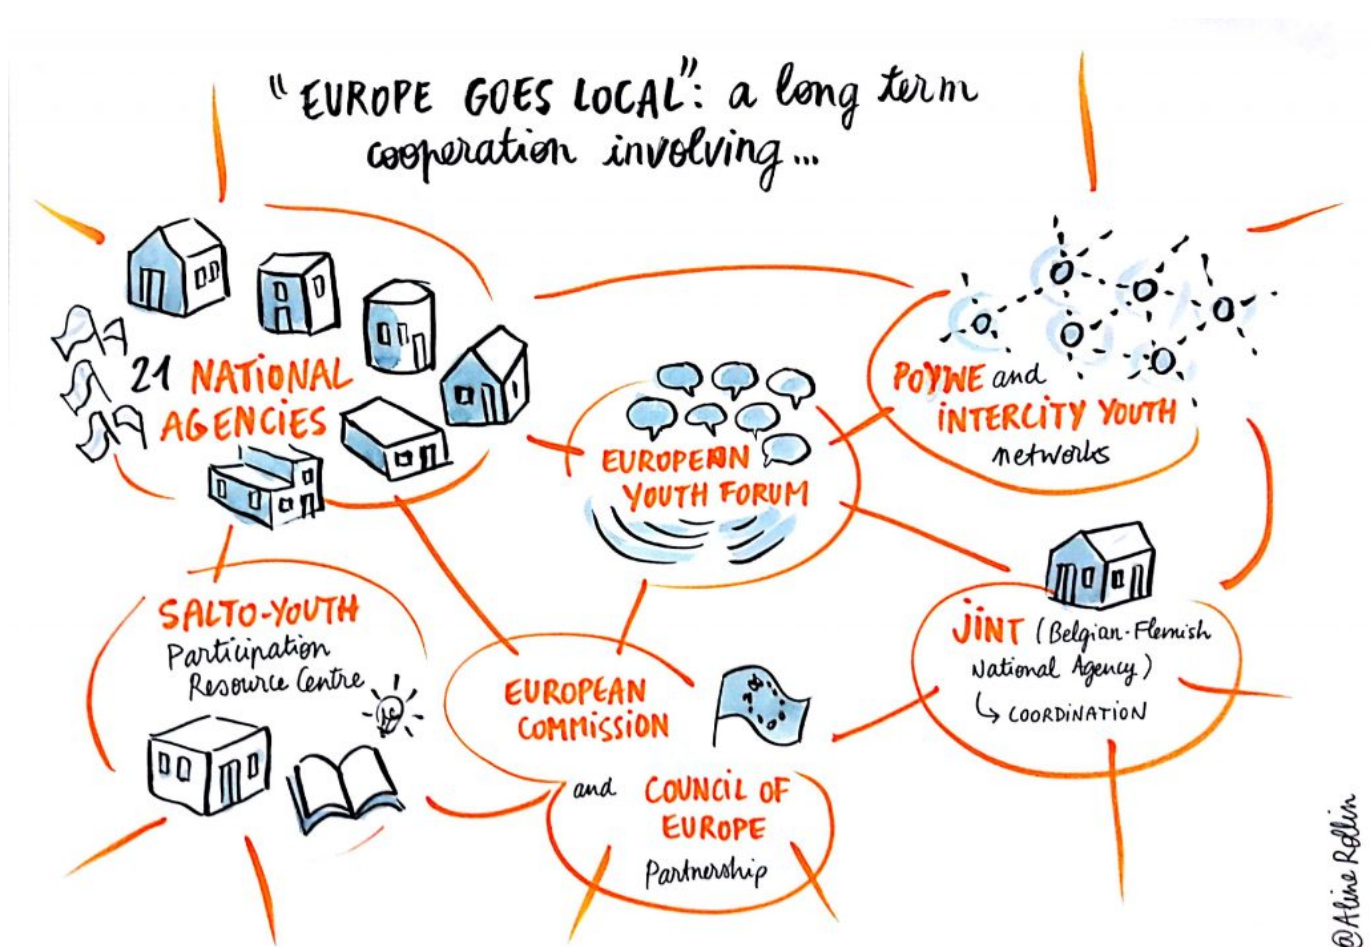 "EUROPE GOES LOCAL": a long term
cooperation involving...
21 NATIONAL
AGENCIES
EUROPEAN
YOUTH FORUM
POYWE and
INTERCITY YOUTH
networks
SALTO-YOUTH
Participation
Resource Centre
EUROPEAN
COMMISSION
and COUNCIL OF
EUROPE
Partnership
JINT (Belgian-Flemish
National Agency)
↳ COORDINATION
@Aline Rollin